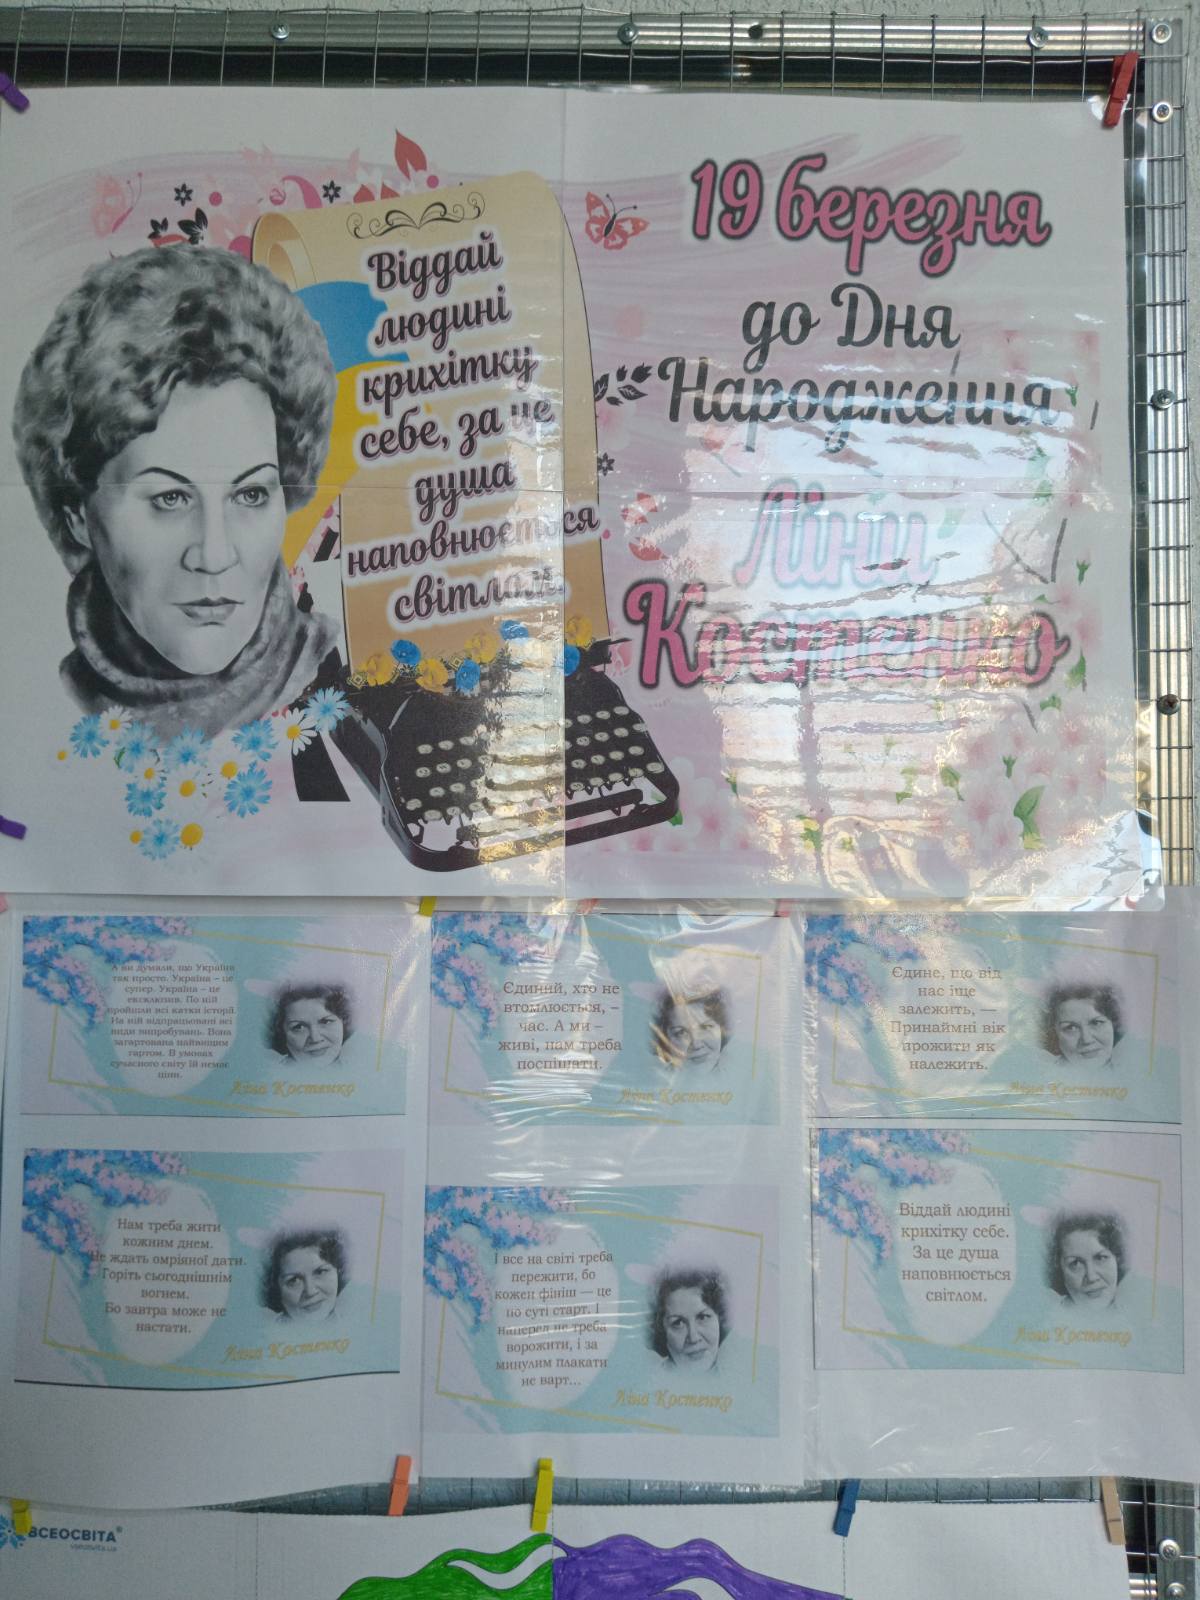 Віддай
людині
крихітку
себе, за це
душа
наповнюється
світлом.
19 березня
до Дня
Народження
Ліни
Костенко
А ви думали, що Україна
так просто. Україна – це
супер. Україна – це
ексклюзив. По ній
пройшли всі катки історії.
На ній відпрацьовані всі
види випробувань. Вона
загартована найвищим
гартом. В умовах
сучасного світу їй немає
ціни.
Ліна Костенко
Єдиний, хто не
втомлюється, –
час. А ми –
живі, нам треба
поспішати.
Ліна Костенко
Єдине, що від
нас іще
залежить, —
Принаймні вік
прожити як
належить.
Ліна Костенко
Нам треба жити
кожним днем.
Не ждать омріяної дати.
Горіть сьогоднішнім
вогнем.
Бо завтра може не
настати.
Ліна Костенко
І все на світі треба
пережити, бо
кожен фініш — це
по суті старт. І
наперед не треба
ворожити, і за
минулим плакати
не варт...
Ліна Костенко
Віддай людині
крихітку себе.
За це душа
наповнюється
світлом.
Ліна Костенко
ВСЕОСВІТА
vseosvita.ua